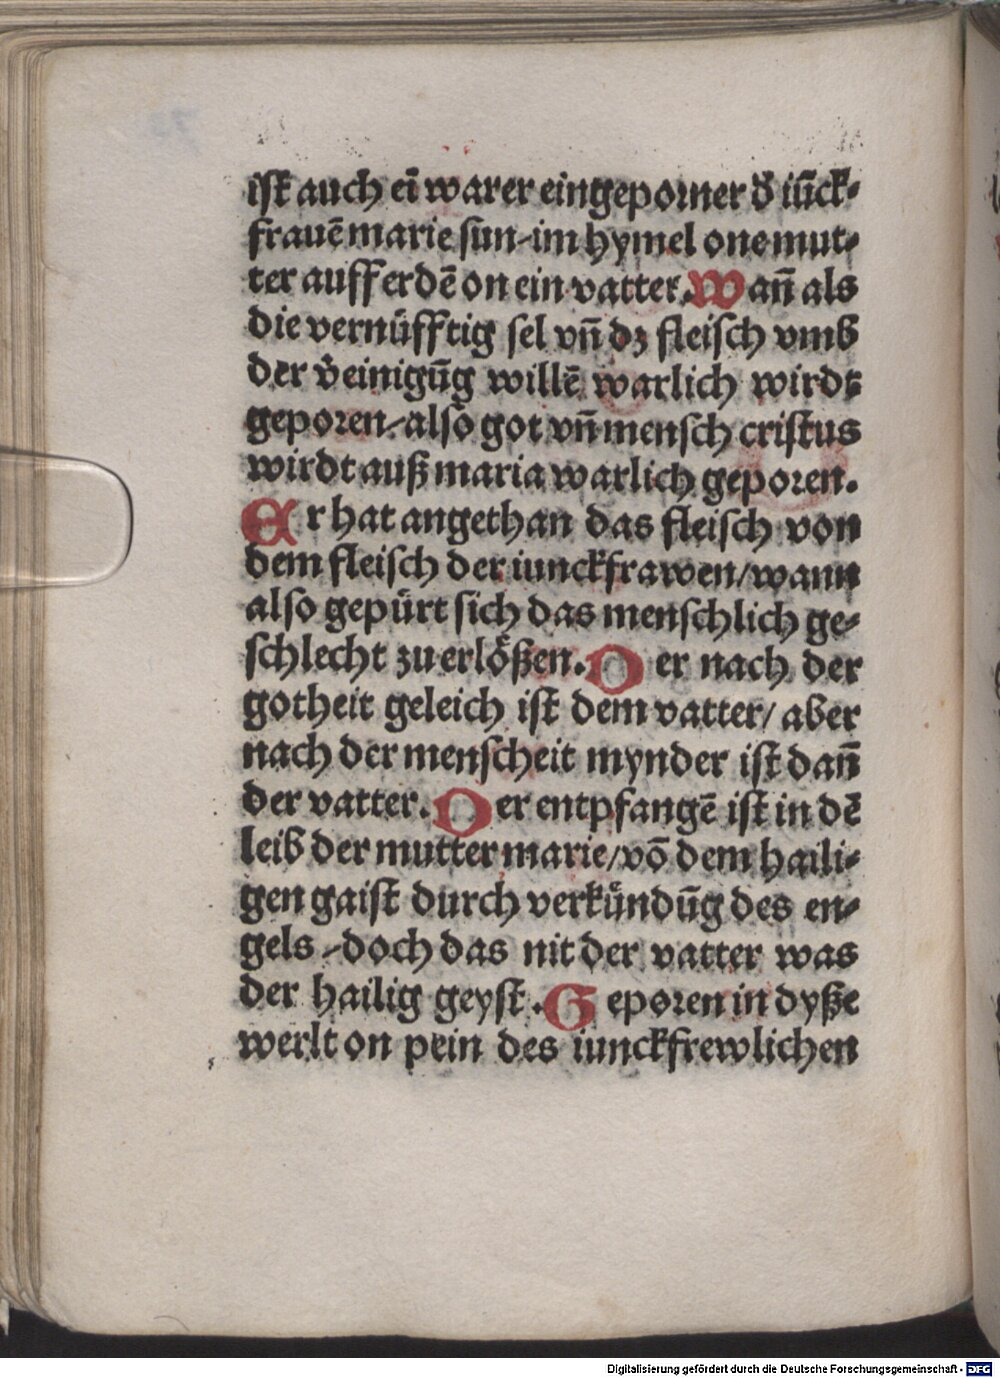 ist auch eī warer eingeporner d̄ iūck-
frauē marie sun/im hymel one mut-
ter auff erdē on ein vatter. Wañ als
die vernüfftig sel vñ dz fleisch vmb
der v̄einigūg willē warlich wirdt
geporen/also got vñ mensch cristus
wirdt auß maria warlich geporen.
Er hat angethan das fleisch von
dem fleisch der iunckfrawen/wann
also gepürt sich das menschlich ge-
schlecht zu erlößen. Der nach der
gotheit geleich ist dem vatter/ aber
nach der menscheit mynder ist dañ
der vatter. Der entpfangē ist in dē
leib der mutter marie/vō dem haili-
gen gaist durch verkündūg des en-
gels/doch das nit der vatter was
der hailig geyst. Geporen in dyße
werlt on pein des iunckfrewlichen
Digitalisierung gefördert durch die Deutsche Forschungsgemeinschaft - DFG